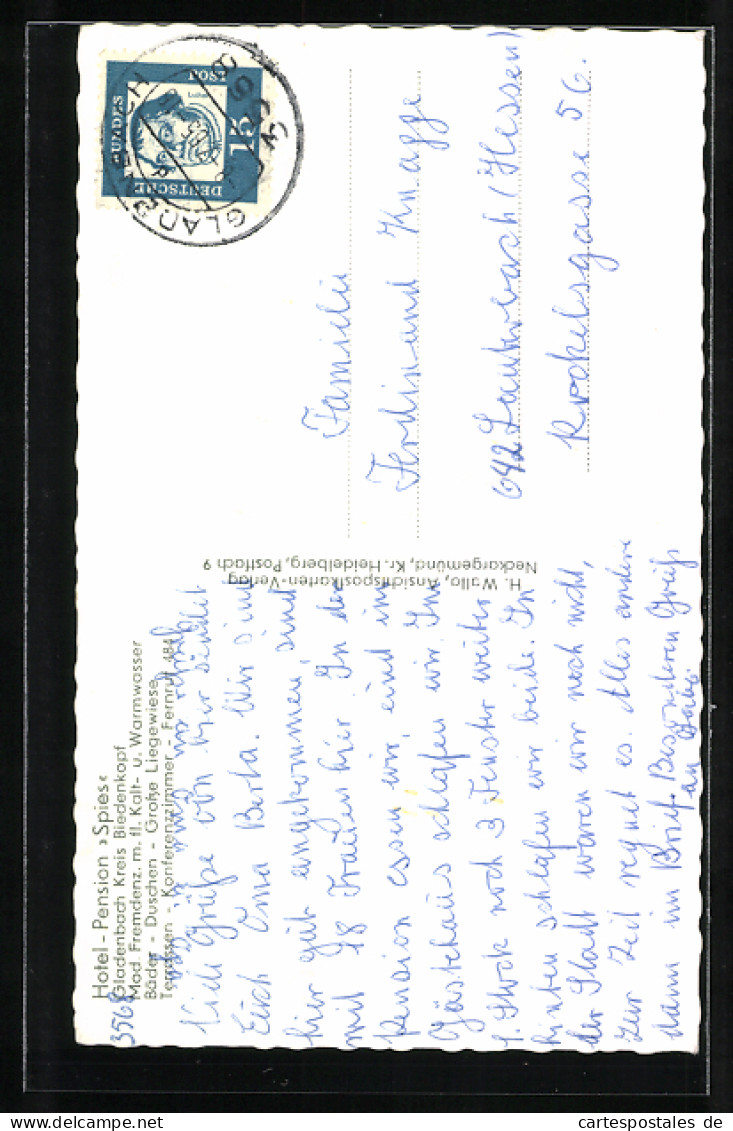 Hotel-Pension »Spies«
3568 Gladenbach Kreis Biedenkopf
Mod. Fremdenz. m. fl. Kalt- u. Warmwasser
Bäder - Duschen - Große Liegewiese
Terrassen - Konferenzzimmer - Fernruf 484
Viele Grüße von hier sendet
Euch Oma Berta. Wir sind
hier gut angekommen, sind
mit 18 Frauen hier. In der
Pension essen wir, und im
Gästehaus schlafen wir. Im
1. Stock noch 3 Fenster weiter
hinten schlafen wir beide. In
der Stadt waren wir noch nicht,
zur Zeit regnet es. Alles andere
dann im Brief. Besonderen Gruß
an
H. Wallo, Ansichtspostkarten-Verlag
Neckargemünd, Kr. Heidelberg, Postfach 9
DEUTSCHE BUNDESPOST
15
Luther
Familie
Ferdinand Knappe
642 Lauterbach (Hessen)
Rockelsgasse 56.
cartespostales.de